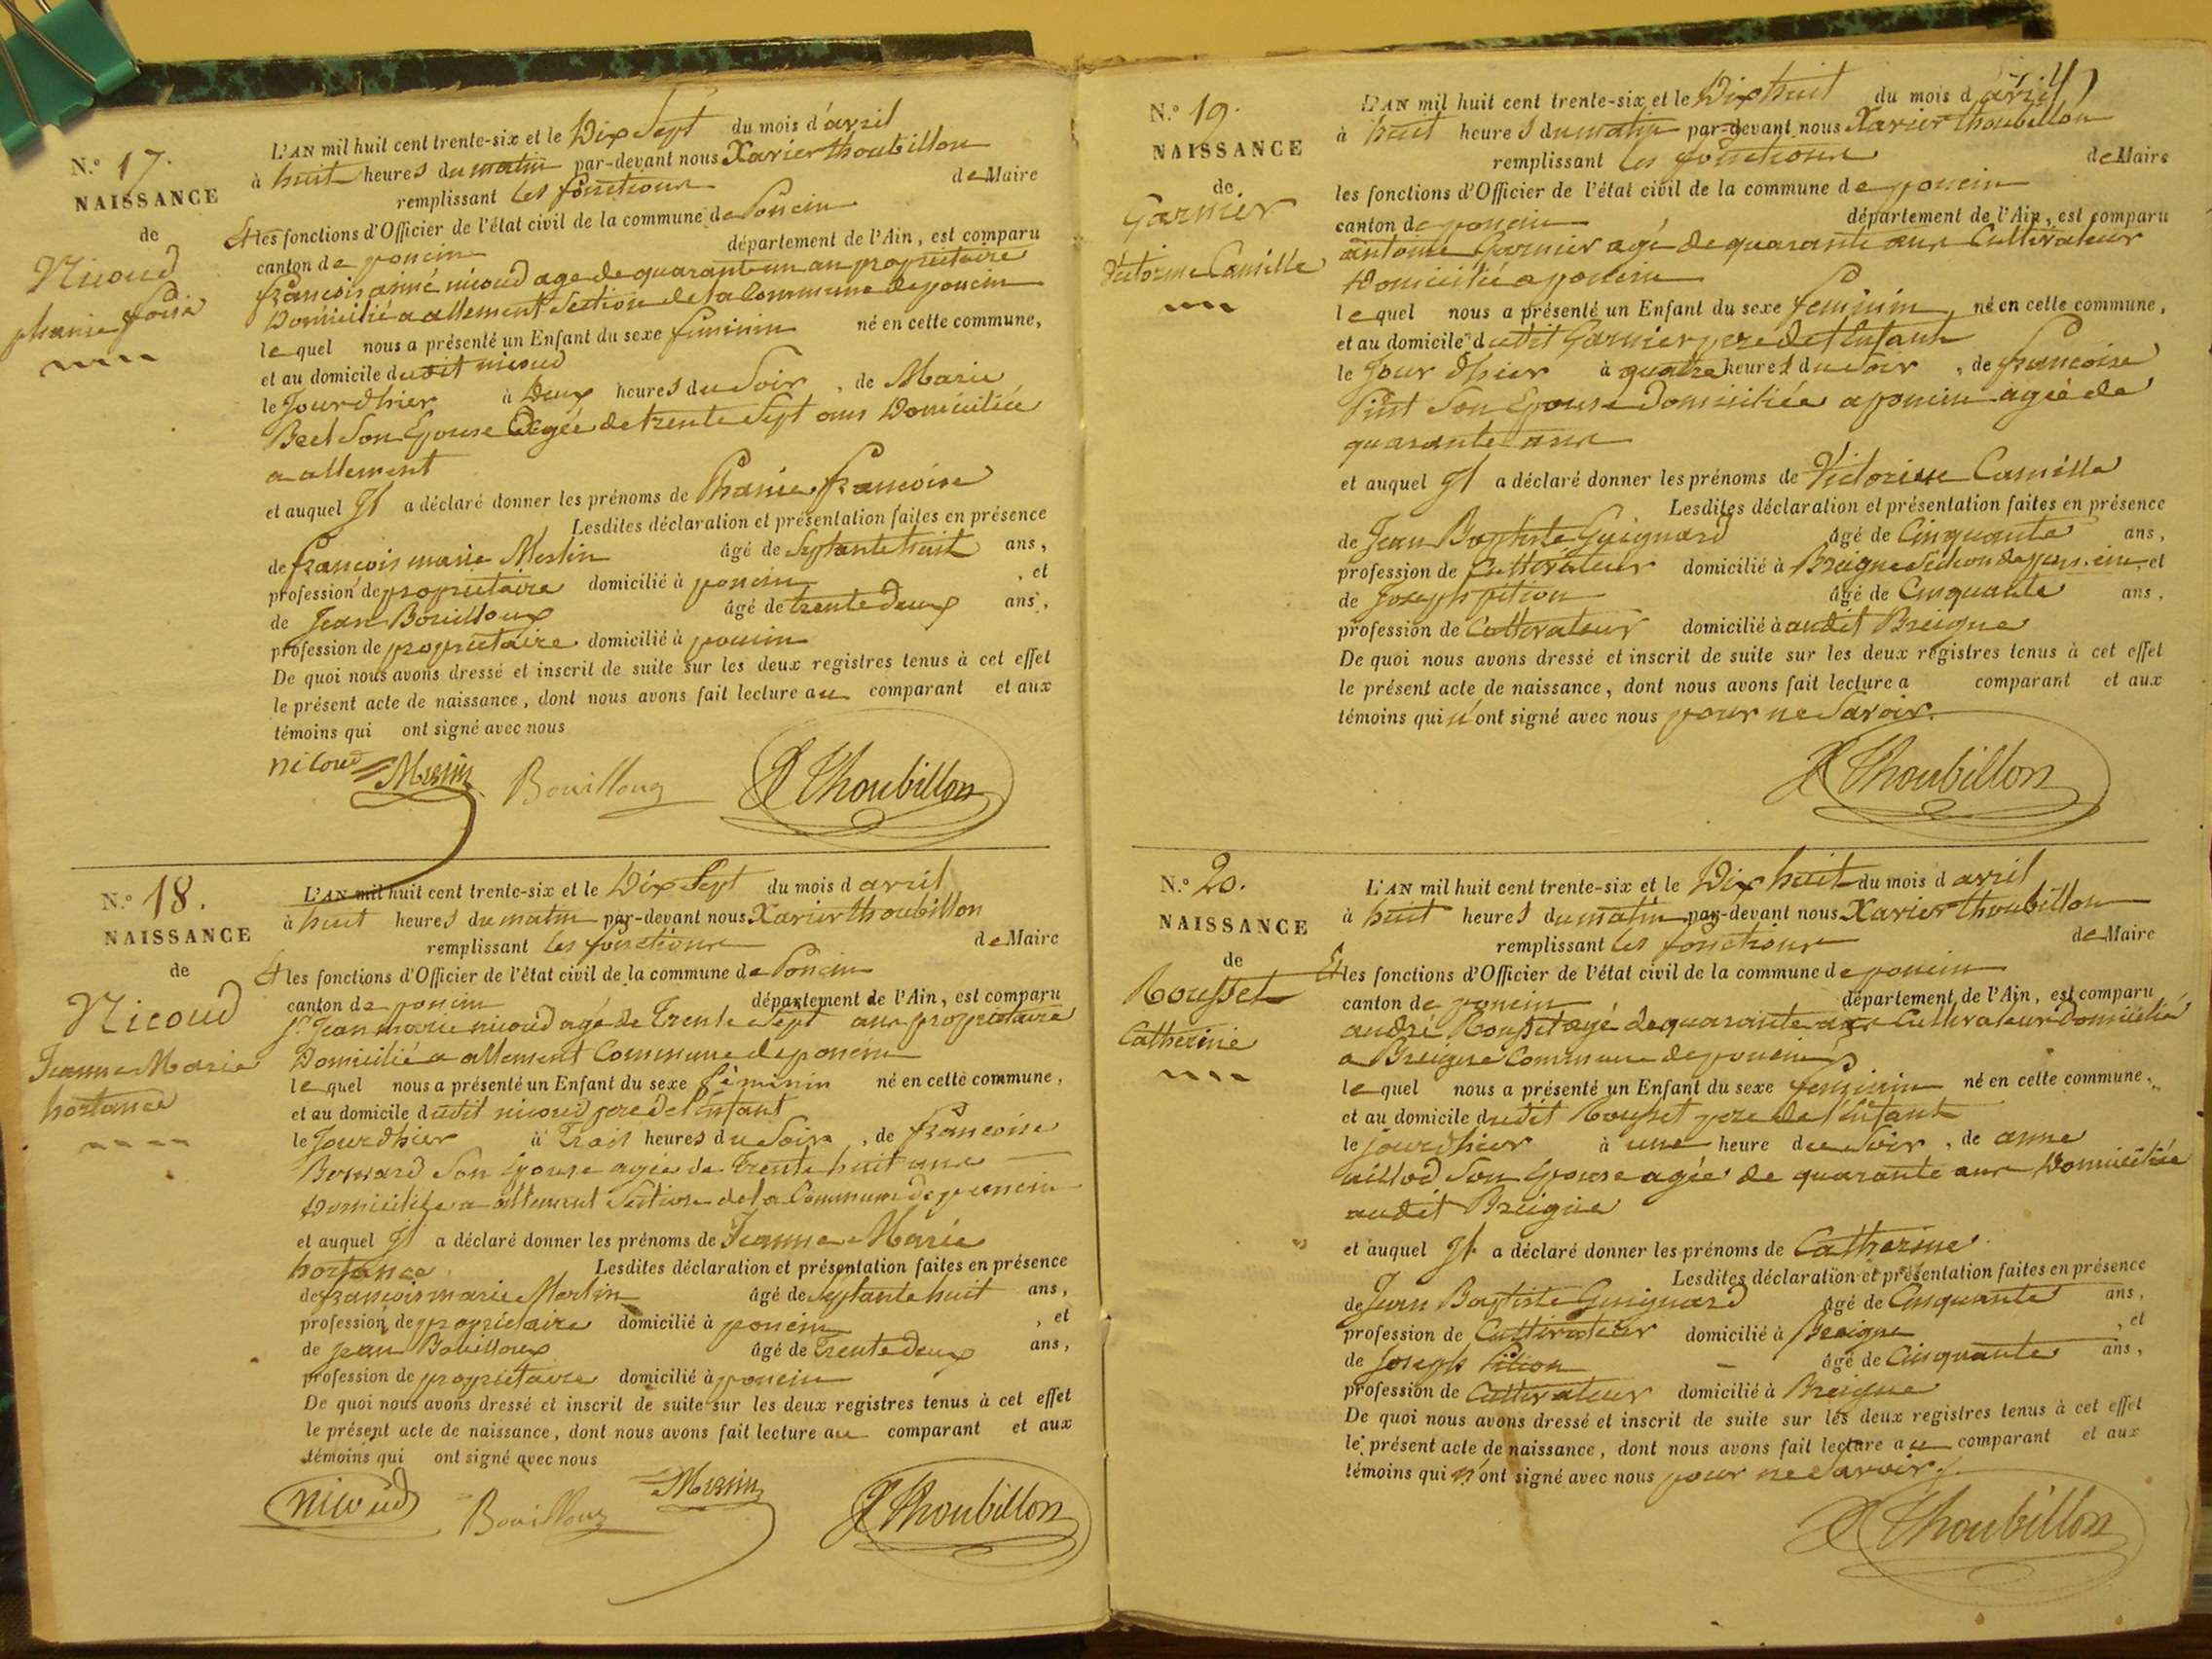 N.º 17.
NAISSANCE
de
Nicoud
phanie foise
L'AN mil huit cent trente-six et le Dix Sept du mois d'avril
à huit heures du matin par-devant nous Xavier thoubillon
remplissant les fonctions de Maire
Et les fonctions d'Officier de l'état civil de la commune de Poncin
canton de poncin département de l'Ain, est comparu
françois aimé nicoud age de quarante un an proprietaire
Domicilié a allement Section de la Commune de poncin
lequel nous a présenté un Enfant du sexe feminin né en cette commune,
et au domicile dudit nicoud
le Jour dhier à Deux heures du Soir, de Marie
Son Epouse Agée de trente Sept ans Domiciliée
a allement
et auquel Il a déclaré donner les prénoms de Phanie françoise
Lesdites déclaration et présentation faites en présence
de françois marie Merlin âgé de Septante huit ans,
profession de proprietaire domicilié à poncin, et
de Jean Bouilloux âgé de trente Deux ans,
profession de proprietaire domicilié à poncin
De quoi nous avons dressé et inscrit de suite sur les deux registres tenus à cet effet
le présent acte de naissance, dont nous avons fait lecture au comparant et aux
témoins qui ont signé avec nous
nicoud Merlin Bouilloux X Thoubillon
N.º 18.
NAISSANCE
de
Nicoud
Jeanne Marie
hortance
L'AN mil huit cent trente-six et le Dix Sept du mois d avril
à huit heures du matin par-devant nous Xavier thoubillon
remplissant les fonctions de Maire
Et les fonctions d'Officier de l'état civil de la commune de Poncin
canton de poncin département de l'Ain, est comparu
Jean marie nicoud agé de Trente Sept ans proprietaire
Domicilié a allement Commune de poncin
lequel nous a présenté un Enfant du sexe féminin né en cette commune,
et au domicile dudit nicoud pere de l'enfant
le Jour dhier à Trois heures du Soir, de françoise
Bornard Son Epouse agée de Trente huit ans
Domiciliée a allement Section de la Commune de poncin
et auquel Il a déclaré donner les prénoms de Jeanne Marie
hortance Lesdites déclaration et présentation faites en présence
de françois marie Merlin âgé de Septante huit ans,
profession de propriétaire domicilié à poncin, et
de Jean Bouilloux âgé de Trente Deux ans,
profession de proprietaire domicilié à poncin
De quoi nous avons dressé et inscrit de suite sur les deux registres tenus à cet effet
le présent acte de naissance, dont nous avons fait lecture au comparant et aux
témoins qui ont signé avec nous
nicoud Bouilloux Merlin X Thoubillon
N.º 19.
NAISSANCE
de
Garnier
Victorine Camille
L'AN mil huit cent trente-six et le Dix huit du mois d avril
à huit heures du matin par-devant nous Xavier thoubillon
remplissant les fonctions de Maire
les fonctions d'Officier de l'état civil de la commune de poncin
canton de poncin département de l'Ain, est comparu
antoine Garnier agé de quarante ans Cultivateur
Domicilié a poncin
lequel nous a présenté un Enfant du sexe feminin, né en cette commune,
et au domicile dudit Garnier pere de l'Enfant
le Jour dhier à quatre heures du soir, de françoise
Son Epouse Domiciliée a poncin agée de
quarante ans
et auquel Il a déclaré donner les prénoms de Victorine Camille
Lesdites déclaration et présentation faites en présence
de Jean Baptiste Guignard âgé de Cinquante ans,
profession de Cultivateur domicilié à Breigne Section de poncin et
de Joseph pition âgé de Cinquante ans,
profession de Cultivateur domicilié à audit Breigne
De quoi nous avons dressé et inscrit de suite sur les deux régistres tenus à cet effet
le présent acte de naissance, dont nous avons fait lecture a comparant et aux
témoins qui n'ont signé avec nous pour ne Savoir.
X Thoubillon
N.º 20.
NAISSANCE
de
Rousset
Catherine
L'AN mil huit cent trente-six et le Dix huit du mois d avril
à huit heures du matin par-devant nous Xavier thoubillon
remplissant les fonctions de Maire
Et les fonctions d'Officier de l'état civil de la commune de poncin
canton de poncin département de l'Ain, est comparu
andré Rousset agé de quarante ans Cultivateur Domicilié
a Breigne Commune de poncin
lequel nous a présenté un Enfant du sexe feminin né en cette commune,
et au domicile dudit Rousset pere de l'Enfant
le jour dhier à une heure du Soir, de anne
Son Epouse agée de quarante ans Domiciliée
audit Breigne
et auquel Il a déclaré donner les prénoms de Catherine
Lesdites déclaration et présentation faites en présence
de Jean Baptiste Guignard âgé de Cinquante ans,
profession de Cultivateur domicilié à Breigne, et
de Joseph Pition âgé de Cinquante ans,
profession de Cultivateur domicilié à Breigne
De quoi nous avons dressé et inscrit de suite sur les deux registres tenus à cet effet
le présent acte de naissance, dont nous avons fait lecture au comparant et aux
témoins qui n'ont signé avec nous pour ne Savoir.
X Thoubillon